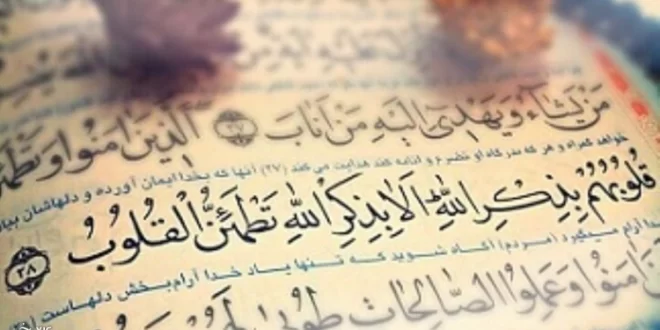 مَنْ يَشَاءُ وَيَهْدِي إِلَيْهِ مَنْ أَنَابَ ﴿٢٧﴾ الَّذِينَ آمَنُوا وَتَطْمَئِنُّ
خواهد گمراه و هر که بدرگاه او تضرع و انابه کند هدایت می کند (۲۷) آنها که بخدا ایمان آورده و دلهاشان بیاد
قُلُوبُهُمْ بِذِكْرِ اللَّهِ أَلَا بِذِكْرِ اللَّهِ تَطْمَئِنُّ الْقُلُوبُ ﴿٢٨﴾
خدا آرام میگیرد (مردم) آگاه شوید که تنها یاد خدا آرام‌بخش دلهاست (۲۸)
آمَنُوا وَعَمِلُوا الصَّالِحَاتِ طُوبَىٰ لَهُمْ